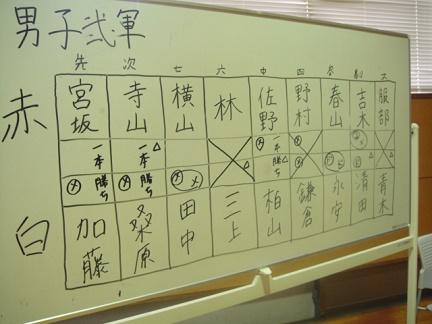 男子弐軍
先 次 七 六 中 四 参 副 大
赤 宮坂 寺山 横山 林 佐野 野村 春山 吉木 服部
一本勝ち 一本勝ち 一本勝ち
メ メ メ メ
白 加藤 桑原 田中 三上 柏山 鎌倉 永安 清田 青木